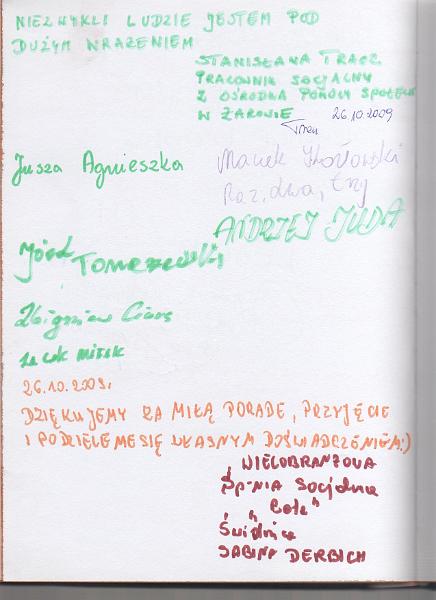 NIEZWYKLI LUDZIE JESTEM POD
DUŻYM WRAŻENIEM
STANISŁAWA TRACZ
PRACOWNIK SOCJALNY
Z OŚRODKA POMOCY SPOŁECZ
W ŻAROWIE 26.10.2009
Jusza Agnieszka
Maciek Kozłowski
Raz, dwa, trzy
ANDRZEJ JUDA
Józef Tomczewski
Zbigniew
Jacek Mitek
26.10.2009.
DZIĘKUJEMY ZA MIŁĄ PORADE, PRZYJĘCIE
I PODZIELENIE SIĘ WŁASNYM DOŚWIADCZENIEM:)
WIELOBRANŻOWA
Sp-nia Socjalna
Świdnica
SABINA DERBICH